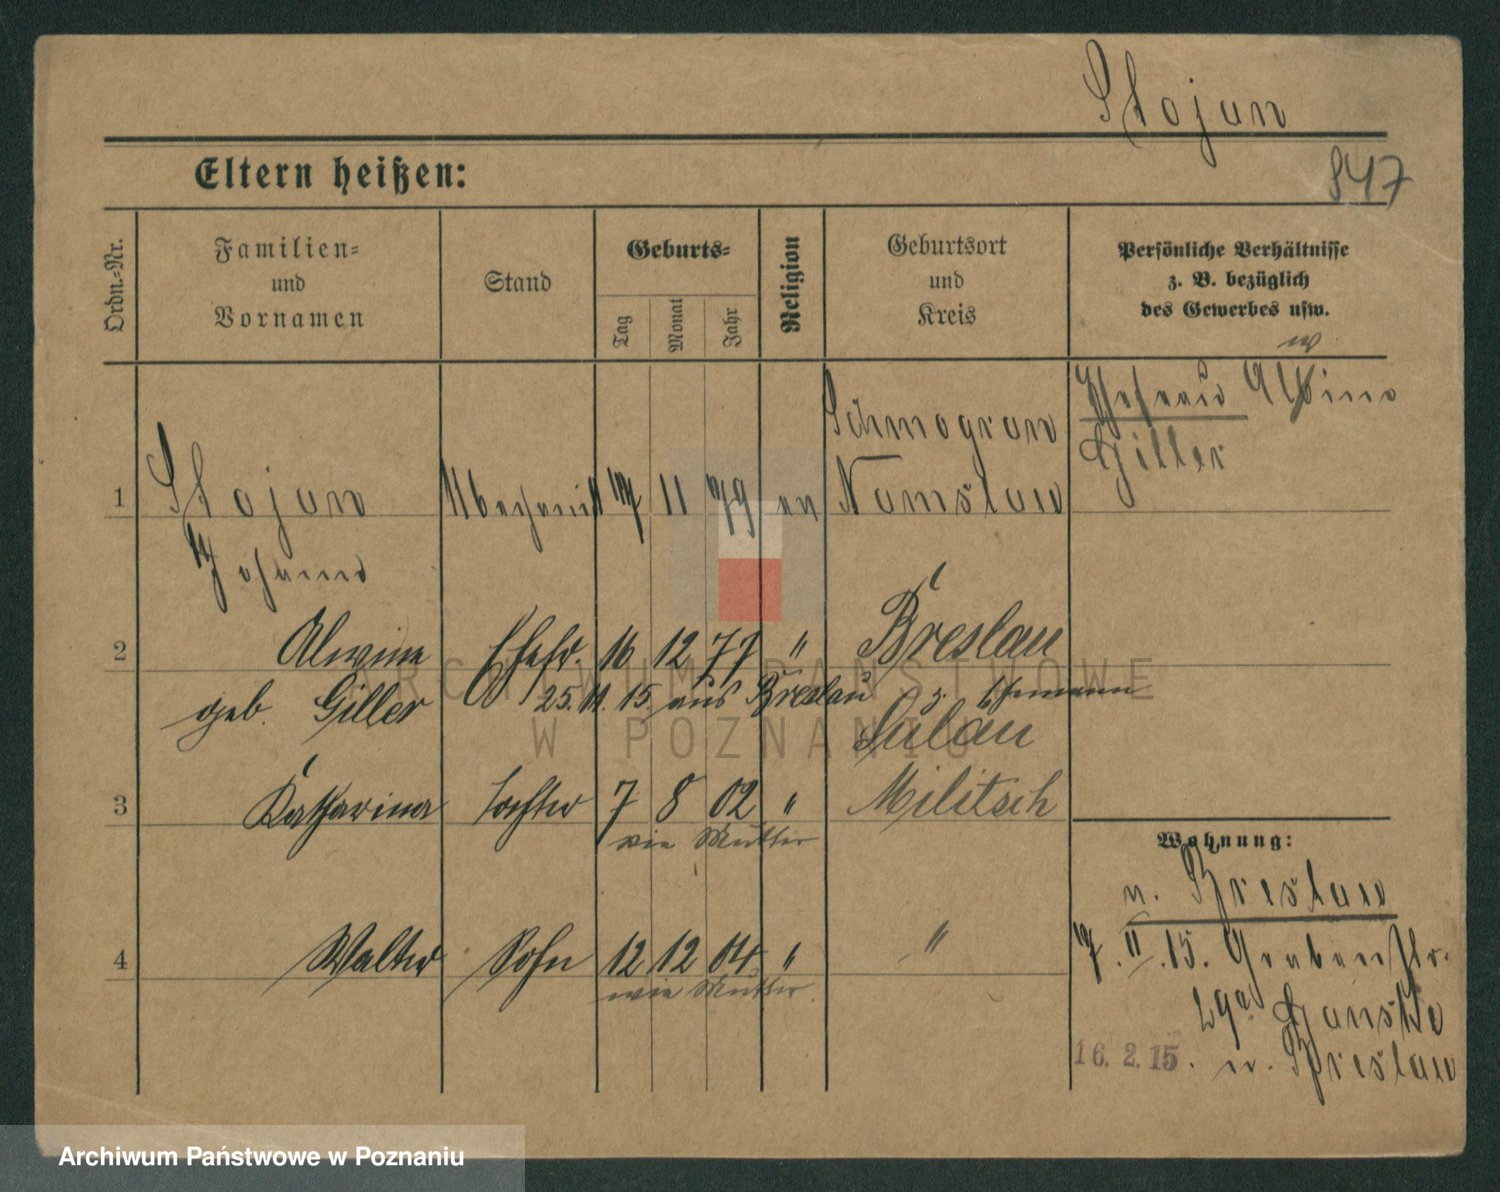 Stojan
847
Eltern heißen:
Ordn.-Nr.
Familien-
und
Vornamen
Stand
Geburts-
Tag
Monat
Jahr
Religion
Geburtsort
und
Kreis
Persönliche Verhältnisse
z. B. bezüglich
des Gewerbes usw.
Ehefrau Alwine
Giller
Schmograu
1 Stojan 11 79 ev Namslau
Johann
2 Alwine Ehefr. 16 12 77 " Breslau
geb. Giller 25. 11. 15. aus Breslau z. Ehemann
Sulau
3 Katharina Tochter 7 8 02 " Militsch
wie Mutter
4 Walter Sohn 12 12 04 " "
wie Mutter
Wohnung:
n. Breslau
15. Grabenstr.
29a
16. 2. 15. n. Breslau
ARCHIWUM PAŃSTWOWE
W POZNANIU
Archiwum Państwowe w Poznaniu